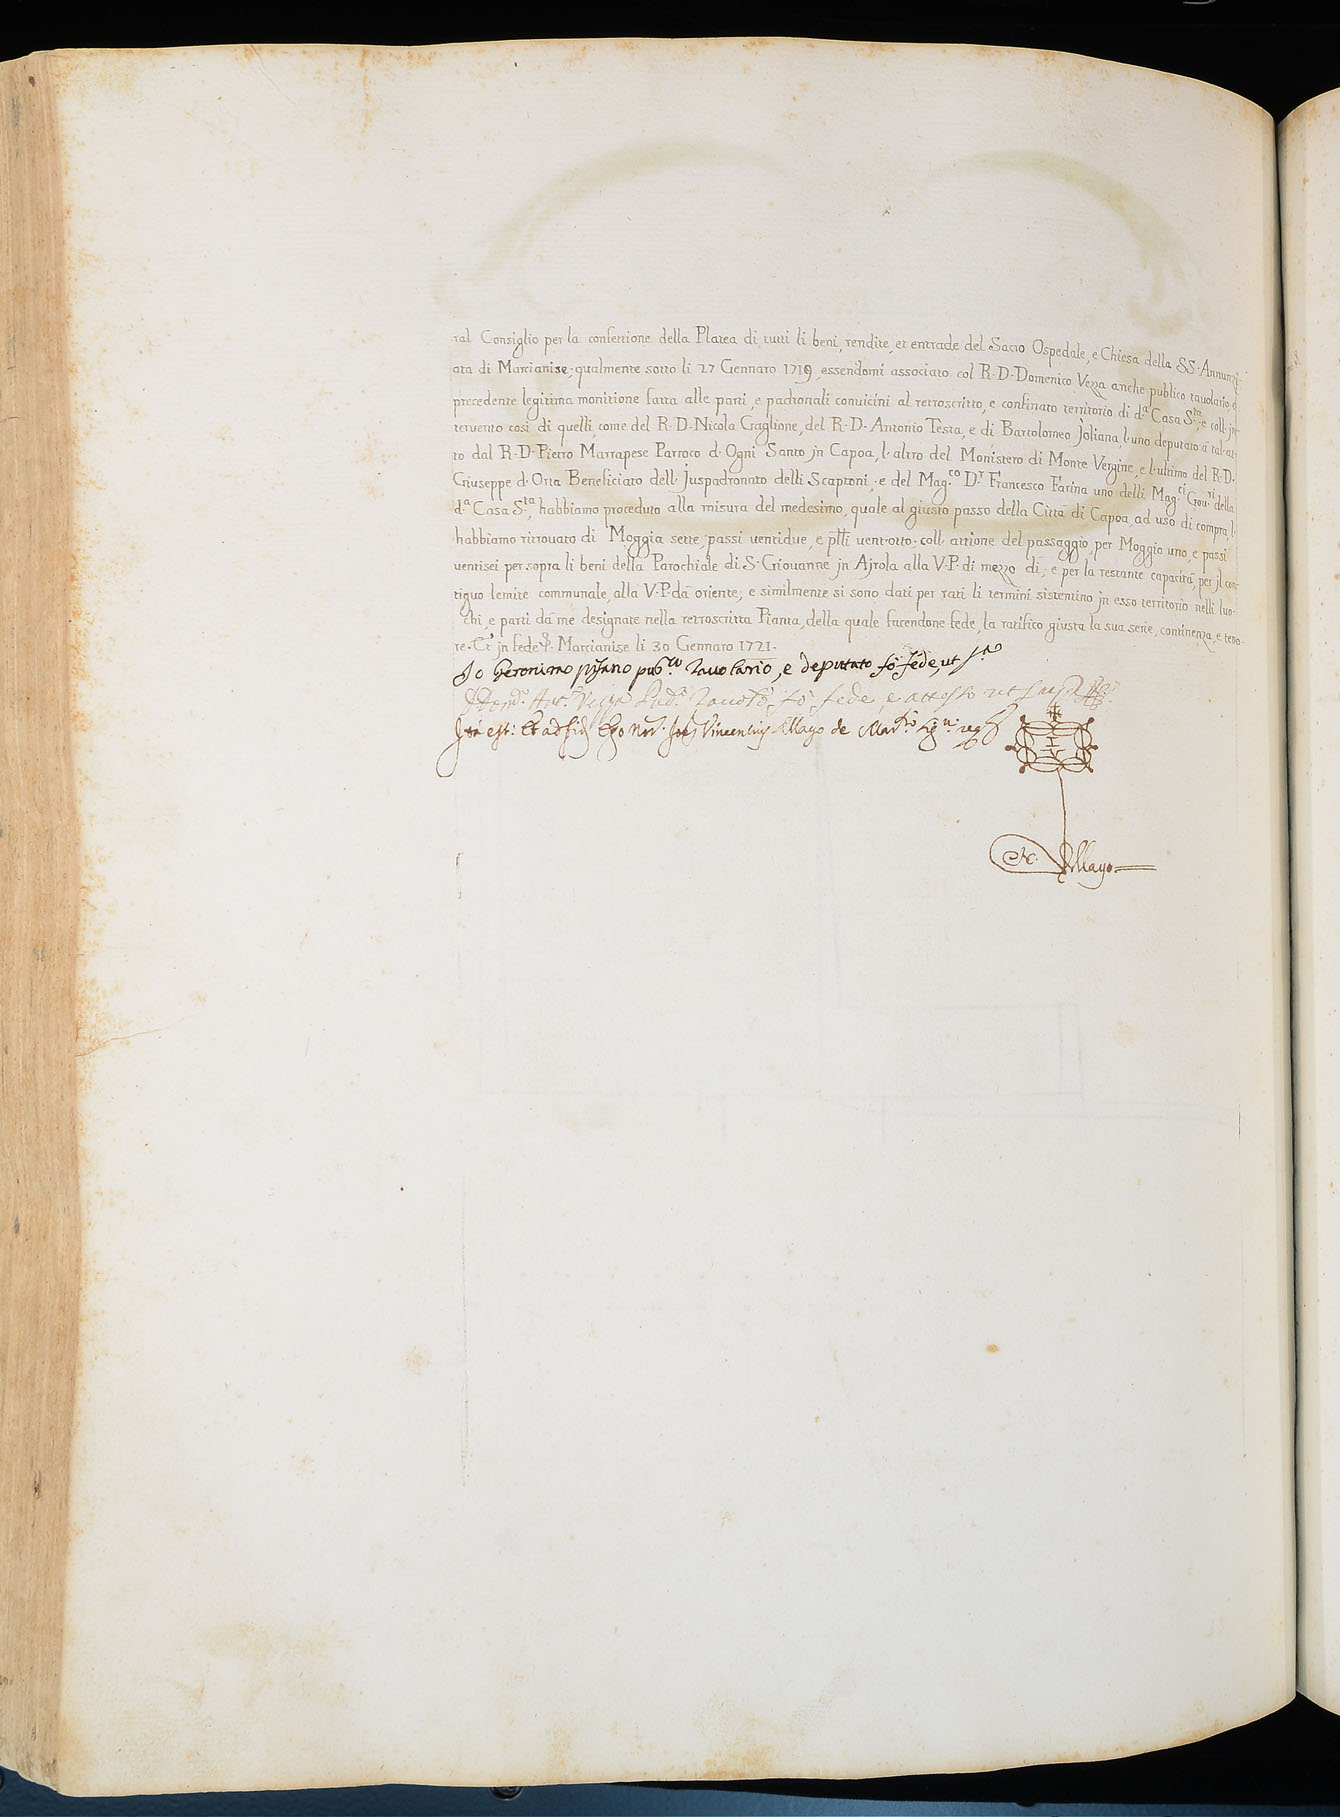 ral Consiglio per la confettione della Platea di tutti li beni, rendite, et entrade del Sacro Ospedale, e Chiesa della SS. Annunzi
ata di Marcianise; qualmente sotto li 27 Gennaro 1719, essendomi associato col R. D. Domenico Vezza anche publico tavolario, e
precedente legitima monitione fatta alle parti, e padronali convicini al retroscritto, e confinato territorio di d.ª Casa S.ta, e coll' jn
tervento così di quelli, come del R. D. Nicola Gaglione, del R. D. Antonio Testa, e di Bartolomeo Joliana, l'uno deputato à tal at
to dal R. D. Pietro Marrapese Parroco d'Ogni Santo jn Capoa, l'altro del Monistero di Monte Vergine, e l'ultimo del R. D.
Giuseppe d'Orta Beneficiato dell' Juspadronato delli Scaptoni, e del Mag.co D.r Francesco Farina uno delli Mag.ci Gov.ri della
d.ª Casa S.ta, habbiamo proceduto alla misura del medesimo, quale al giusto passo della Città di Capoa, ad uso di compra, l'
habbiamo ritrovato di Moggia sette, passi ventidue, e ptti vent'otto, coll' attione del passaggio, per Moggio uno, e passi
ventisei per sopra li beni della Parochiale di S. Giovanne jn Ajrola alla V. P. di mezzo dì; e per la restante capacità, per jl con
tiguo lemite communale, alla V. P. dà oriente; e similmente si sono dati per rati li termini sistentino jn esso territorio nelli luo-
chi, e parti dà me designate nella retroscritta Pianta, della quale facendone fede, la ratifico giusta la sua serie, continenza, e teno
re. Et jn fede &. Marcianise li 30 Gennaro 1721.
Io Geronimo pisano pub.co tavolario, e deputato fò fede, ut s.a
Vezza fò fede e attesto ut supra
Ita est: Et ad fid. Ego Not. Vincentius Mayo de Mar. sig. reg.
Mayo